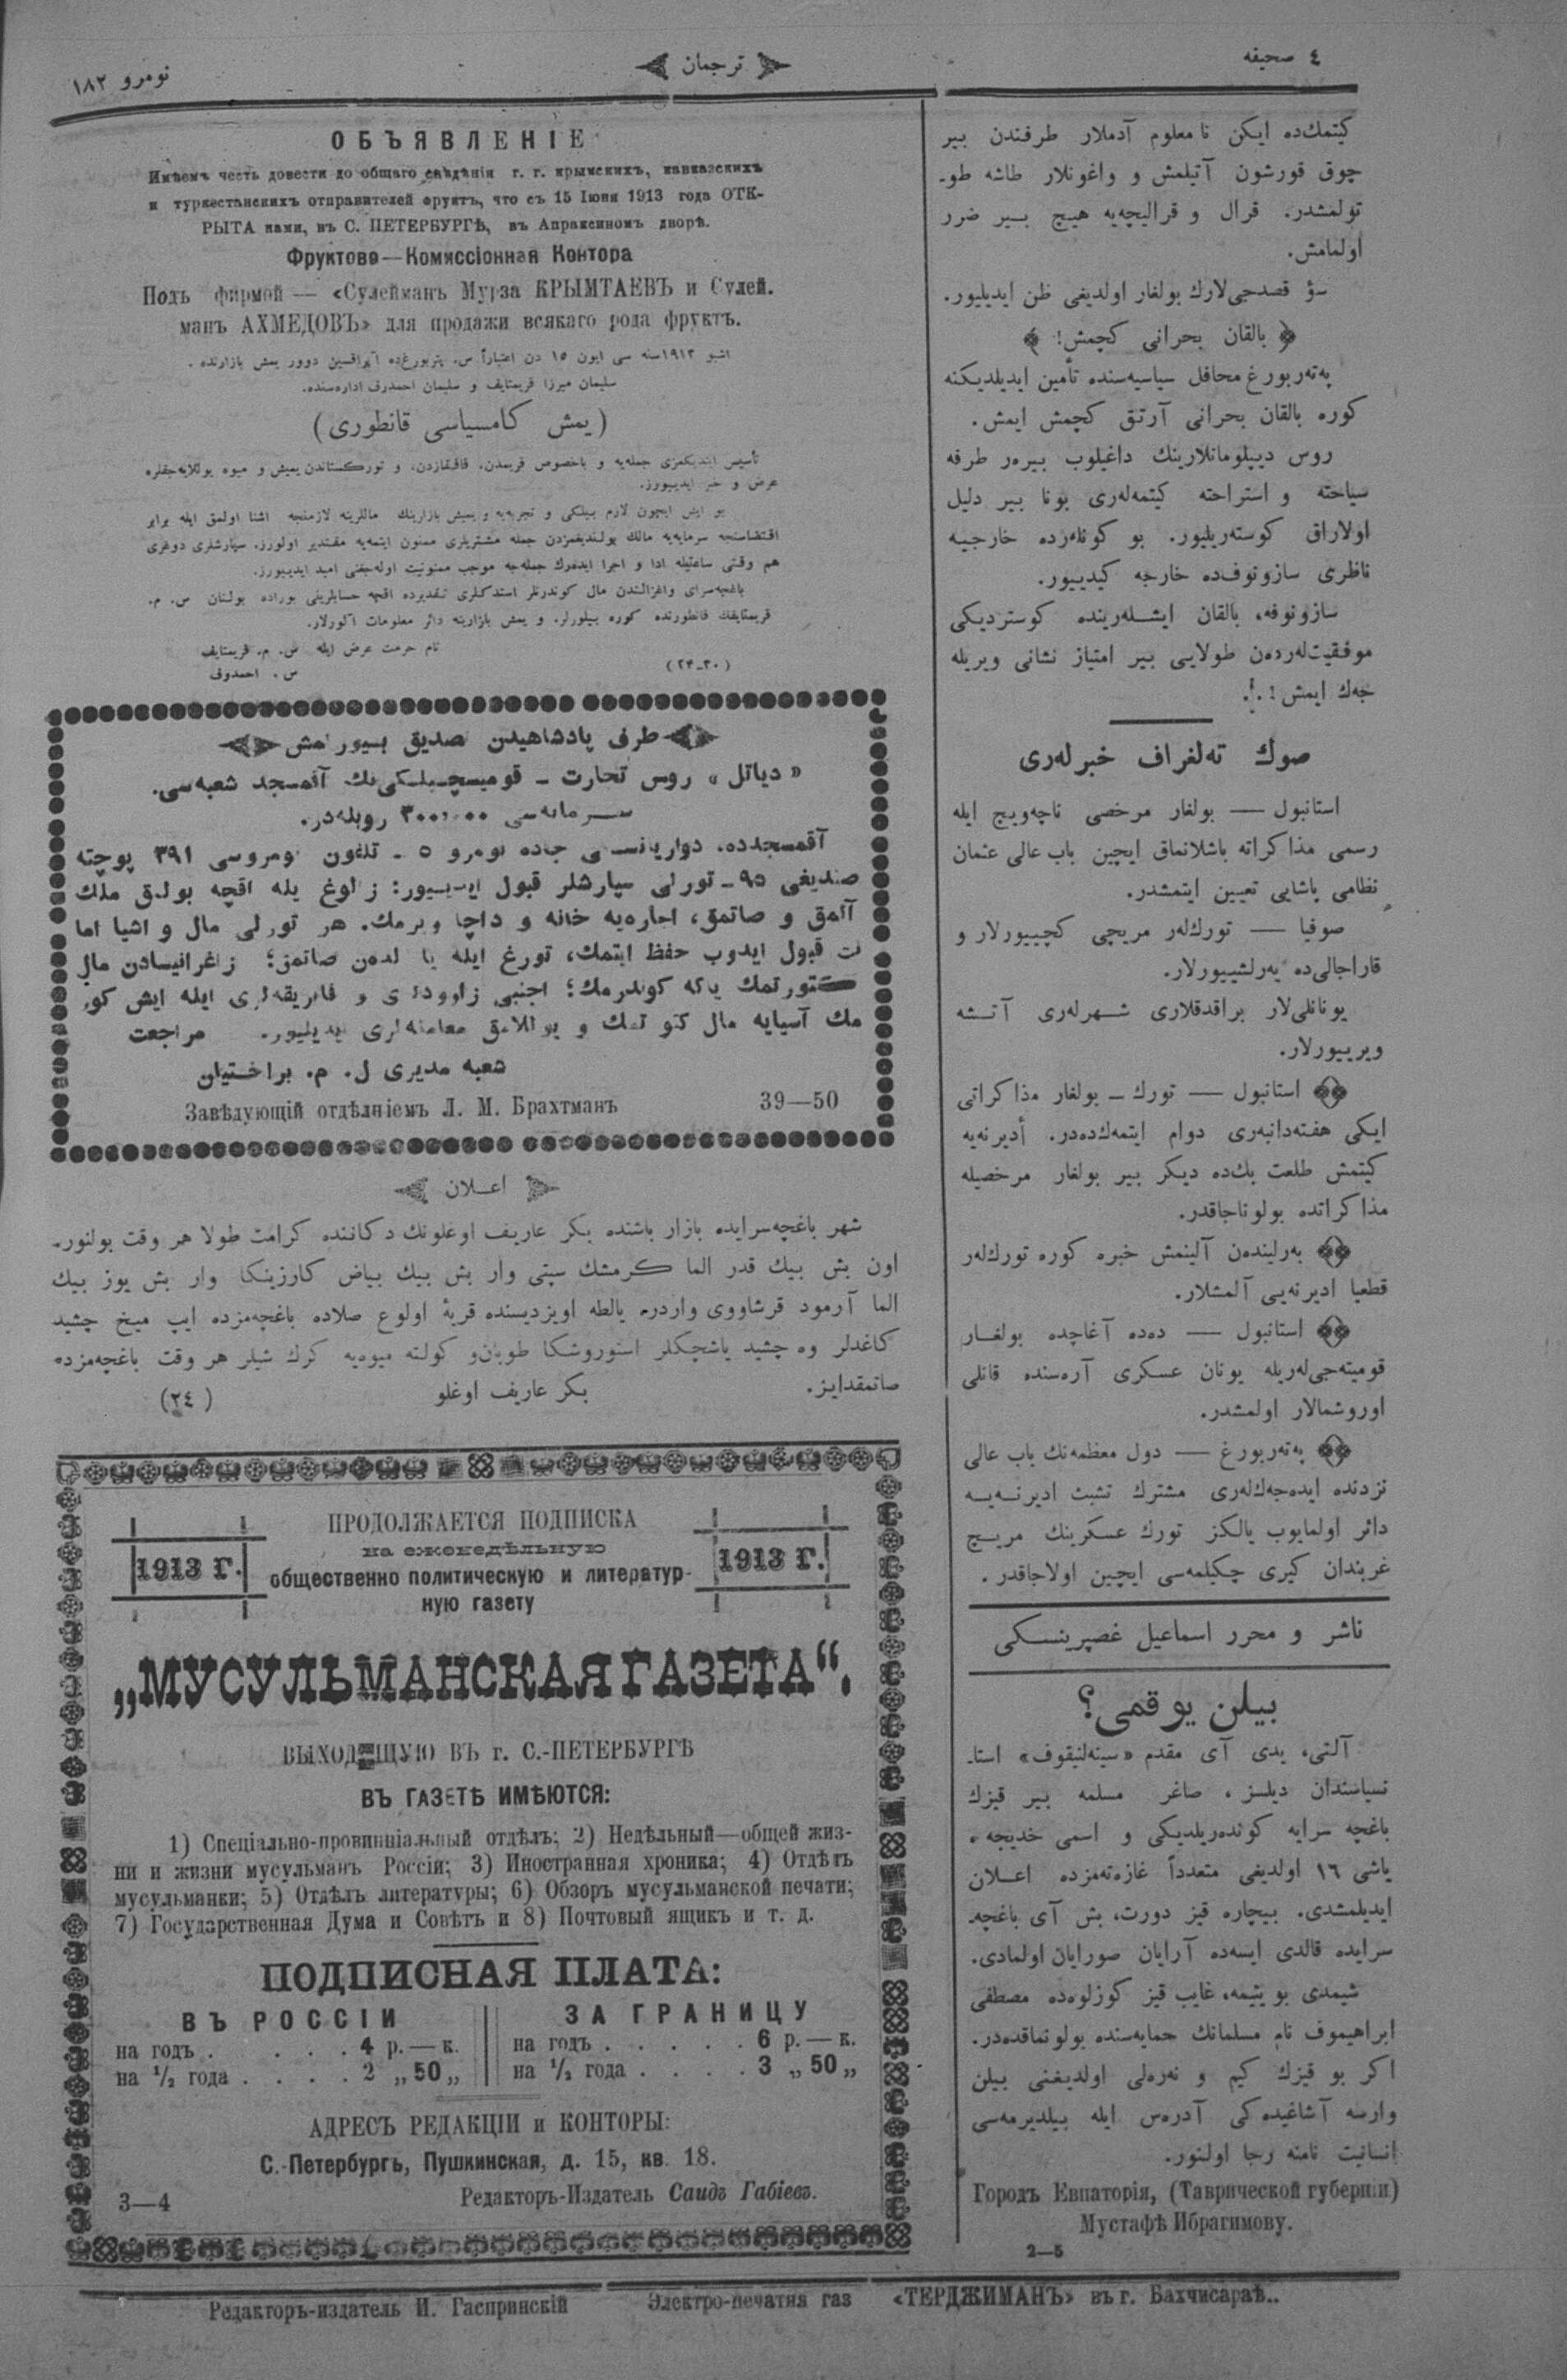 ٤ صحيفه
ترجمان
نومرو ١٨٢
كيتمك‌ده ايكن نا معلوم آدملار طرفندن بير
چوق قورشون آتيلمش و واغونلار طاشه طو-
تولمشدر. قرال و قراليچه‌يه هيچ بير ضرر
اولمامش.
سؤ قصدجى‌لارك بولغار اولديغى ظن ايديليور.
بالقان بحرانى كچمش!
په‌ته‌ربورغ محافل سياسيه‌سنده تأمين ايديلديكنه
كوره بالقان بحرانى آرتق كچمش ايمش.
روس ديپلوماتلارينك داغيلوب بيره‌ر طرفه
سياحته و استراحته كيتمه‌له‌رى بونا بير دليل
اولاراق كوسته‌ريليور. بو كونله‌رده خارجيه
ناظرى سازونوف‌ده خارجه كيدييور.
سازونوفه، بالقان ايشله‌رينده كوستردیكى
موفقيت‌له‌رده‌ن طولايى بير امتياز نشانى ويريله
جه‌ك ايمش!.!.
صوڭ ته‌لغراف خبرله‌رى
استانبول — بولغار مرخصى ناچه‌ويچ ايله
رسمى مذاكراته باشلانماق ايچين باب عالى عثمان
نظامى پاشايى تعيين ايتمشدر.
صوفيا — تورك‌له‌ر مريچى كچييورلار و
قاراجالى‌ده يه‌رلشييورلار.
يونانلى‌لار براقدقلارى شهرله‌رى آتشه
ويرييورلار.
استانبول — تورك ـ بولغار مذاكراتى
ايكى هفته‌دانبه‌رى دوام ايتمه‌كده‌در. أديرنه‌يه
كيتمش طلعت بك‌ده ديكر بير بولغار مرخصيله
مذاكراتده بولوناجاقدر.
به‌رلينده‌ن آلينمش خبره كوره تورك‌له‌ر
قطعيا اديرنه‌يى آلمشلار.
استانبول — ده‌ده آغاچده بولغار
قوميته‌جى‌له‌ريله يونان عسكرى آره‌سنده قانلى
اوروشمالار اولمشدر.
په‌ته‌ربورغ — دول معظمه‌نك باب عالى
نزدنده ايده‌جه‌ك‌له‌رى مشترك تشبث اديرنه‌يه
دائر اولمايوب يالكز تورك عسكرينك مريچ
غربندان كيرى چكيلمه‌سى ايچين اولاجاقدر.
ناشر و محرر اسماعيل غصپرينسكى
بيلن يوقمى؟
آلتى، يدى آى مقدم «سينه‌لنيقوف» استا-
نسياسندان ديلسز، صاغر مسلمه بير قيزك
باغچه سرايه كونده‌ريلديكى و اسمى خديجه،
ياشى ١٦ اولديغى متعدداً غازه‌ته‌مزده اعلان
ايديلمشدى. بيچاره قيز دورت، بش آى باغچه-
سرايده قالدى ايسه‌ده آرايان صورايان اولمادى.
شيمدى بو يتيمه، غايب قيز كوزلوه‌ده مصطفى
ابراهيموف نام مسلمانك حمايه‌سنده بولونماقده‌در.
اكر بو قيزك كيم و نه‌ره‌لى اولديغنى بيلن
وارسه آشاغيده‌كى آدره‌س ايله بيلديرمه‌سى
انسانيت نامنه رجا اولنور.
Городъ Евпаторія, (Таврической губерніи)
Мустафѣ Ибрагимову.
2—5
ОБЪЯВЛЕНІЕ
Имѣемъ честь довести до общаго свѣдѣнія г. г. крымскихъ, кавказскихъ
и туркестанскихъ отправителей фруктъ, что съ 15 Іюня 1913 года ОТК-
РЫТА нами, въ С. ПЕТЕРБУРГѢ, въ Апраксиномъ дворѣ.
Фруктово—Комиссіонная Контора
Подъ фирмой — «Сулейманъ Мурза КРЫМТАЕВЪ и Сулей.
манъ АХМЕДОВЪ» для продажи всякаго рода фруктъ.
اشبو ١٩١٣سنه سى ايون ١٥ دن اعتباراً س. پتربورغ‌ده آپراقسين دوور يمش بازارنده.
سليمان ميرزا قريمتايف و سليمان احمدوف اداره‌سنده.
(يمش كامسياسى قانطورى)
تأسيس ايتديكمزى جمله‌يه و باخصوص قريمدن، قافقازدن، و توركستاندن يميش و ميوه يوللايه‌جقلره
عرض و خبر ايدييورز.
بو ايش ايچون لازم بيلكى و تجربه‌يه و يميش بازارينك ماللرينه لازمنجه اشنا اولمق ايله برابر
اقتضاسنجه سرمايه‌يه مالك بولنديغمزدن جمله مشتريلرى ممنون ايتمه‌يه مقتدير اولورز. سپارشلرى دوغرى
هم وقتى ساعتيله ادا و اجرا ايده‌رك جمله‌جه موجب ممنونيت اوله‌جغنى اميد ايدييورز.
باغچه‌سراى واغزالندن مال كوندرنلر استدكلرى تقديرده اقچه حسابلرينى بوراده بولنان س. م.
قريمتايفك قانطورنده كوره بيلورلر. و يمش بازارينه دائر معلومات آلورلار.
تام حرمت عرض ايله س. م. قريمتايف
س. احمدوف
(٣٠-٢٤)
طرف پادشاهيدن تصديق بيورلمش
«دياتل» روس تجارت ـ قوميسيچيلكى‌نك آقمسجد شعبه‌سى.
سرمايه‌سى ٣٠٠،٠٠٠ روبله‌در.
آقمسجدده، دواريانسكى جاده نومرو ٥ ـ تلفون نومروسى ٣٩١ پوچته
صنديغى ٩٥ـ تورلى سپارشلر قبول ايدييور: زالوغ يله اقچه بولق ملك
آلمق و صاتمق، اجاره‌يه خانه و داچا ويرمك. هر تورلى مال و اشيا اما
نت قبول ايدوب حفظ ايتمك، تورغ ايله يا لده‌ن صاتمق؛ زاغرانيسادن مال
كتورتمك ياكه كوندرمك؛ اجنبى زاوودلرى و فابريقه‌لرى ايله ايش كور
مك آسيايه مال كتورتمك و يوللامق معامله‌لرى ايديليور. مراجعت
شعبه مديرى ل. م. براختيان
Завѣдующій отдѣлніемъ Л. М. Брахтманъ 39—50
اعلان
شهر باغچه‌سرايده بازار باشنده بكر عاريف اوغلونك دكاننده كرامت طولا هر وقت بولنور-
اون بش بيك قدر الما كرمشك سپتى وار بش بيك بياض كارزينكا وار بش يوز بيك
الما آرمود قرشاووى واردر، يالطه اويزديسنده قريۀ اولوع صلاده باغچه‌مزده ايپ ميخ چشيد
كاغدلر وه چشيد ياشچكلر استوروشكا طوبان‌و كولته ميوه‌يه كرك شيلر هر وقت باغچه‌مزده
صاتمقدايز. بكر عاريف اوغلو (٢٤)
ПРОДОЛЖАЕТСЯ ПОДПИСКА
на еженедѣльную
1913 г. общественно политическую и литератур- 1913 г.
ную газету
„МУСУЛЬМАНСКАЯ ГАЗЕТА“,
ВЫХОДЯЩУЮ ВЪ г. С.-ПЕТЕРБУРГѢ
ВЪ ГАЗЕТѢ ИМѢЮТСЯ:
1) Спеціально-провинціальный отдѣлъ; 2) Недѣльный—общей жиз-
ни и жизни мусульманъ Россіи; 3) Иностранная хроника; 4) Отдѣлъ
мусульманки; 5) Отдѣлъ литературы; 6) Обзоръ мусульманской печати;
7) Государственная Дума и Совѣтъ и 8) Почтовый ящикъ и т. д.
ПОДПИСНАЯ ПЛАТА:
ВЪ РОССІИ
на годъ . . . . 4 р. — к.
на ½ года . . . . 2 „ 50 „
ЗА ГРАНИЦУ
на годъ . . . . . 6 р. — к.
на ½ года . . . . 3 „ 50 „
АДРЕСЪ РЕДАКЦІИ и КОНТОРЫ:
С.-Петербургъ, Пушкинская, д. 15, кв. 18.
3—4 Редакторъ-Издатель Саидъ Габіевъ.
Редакторъ-издатель И. Гаспринскій Электро-печатня газ «ТЕРДЖИМАНЪ» въ г. Бахчисараѣ..